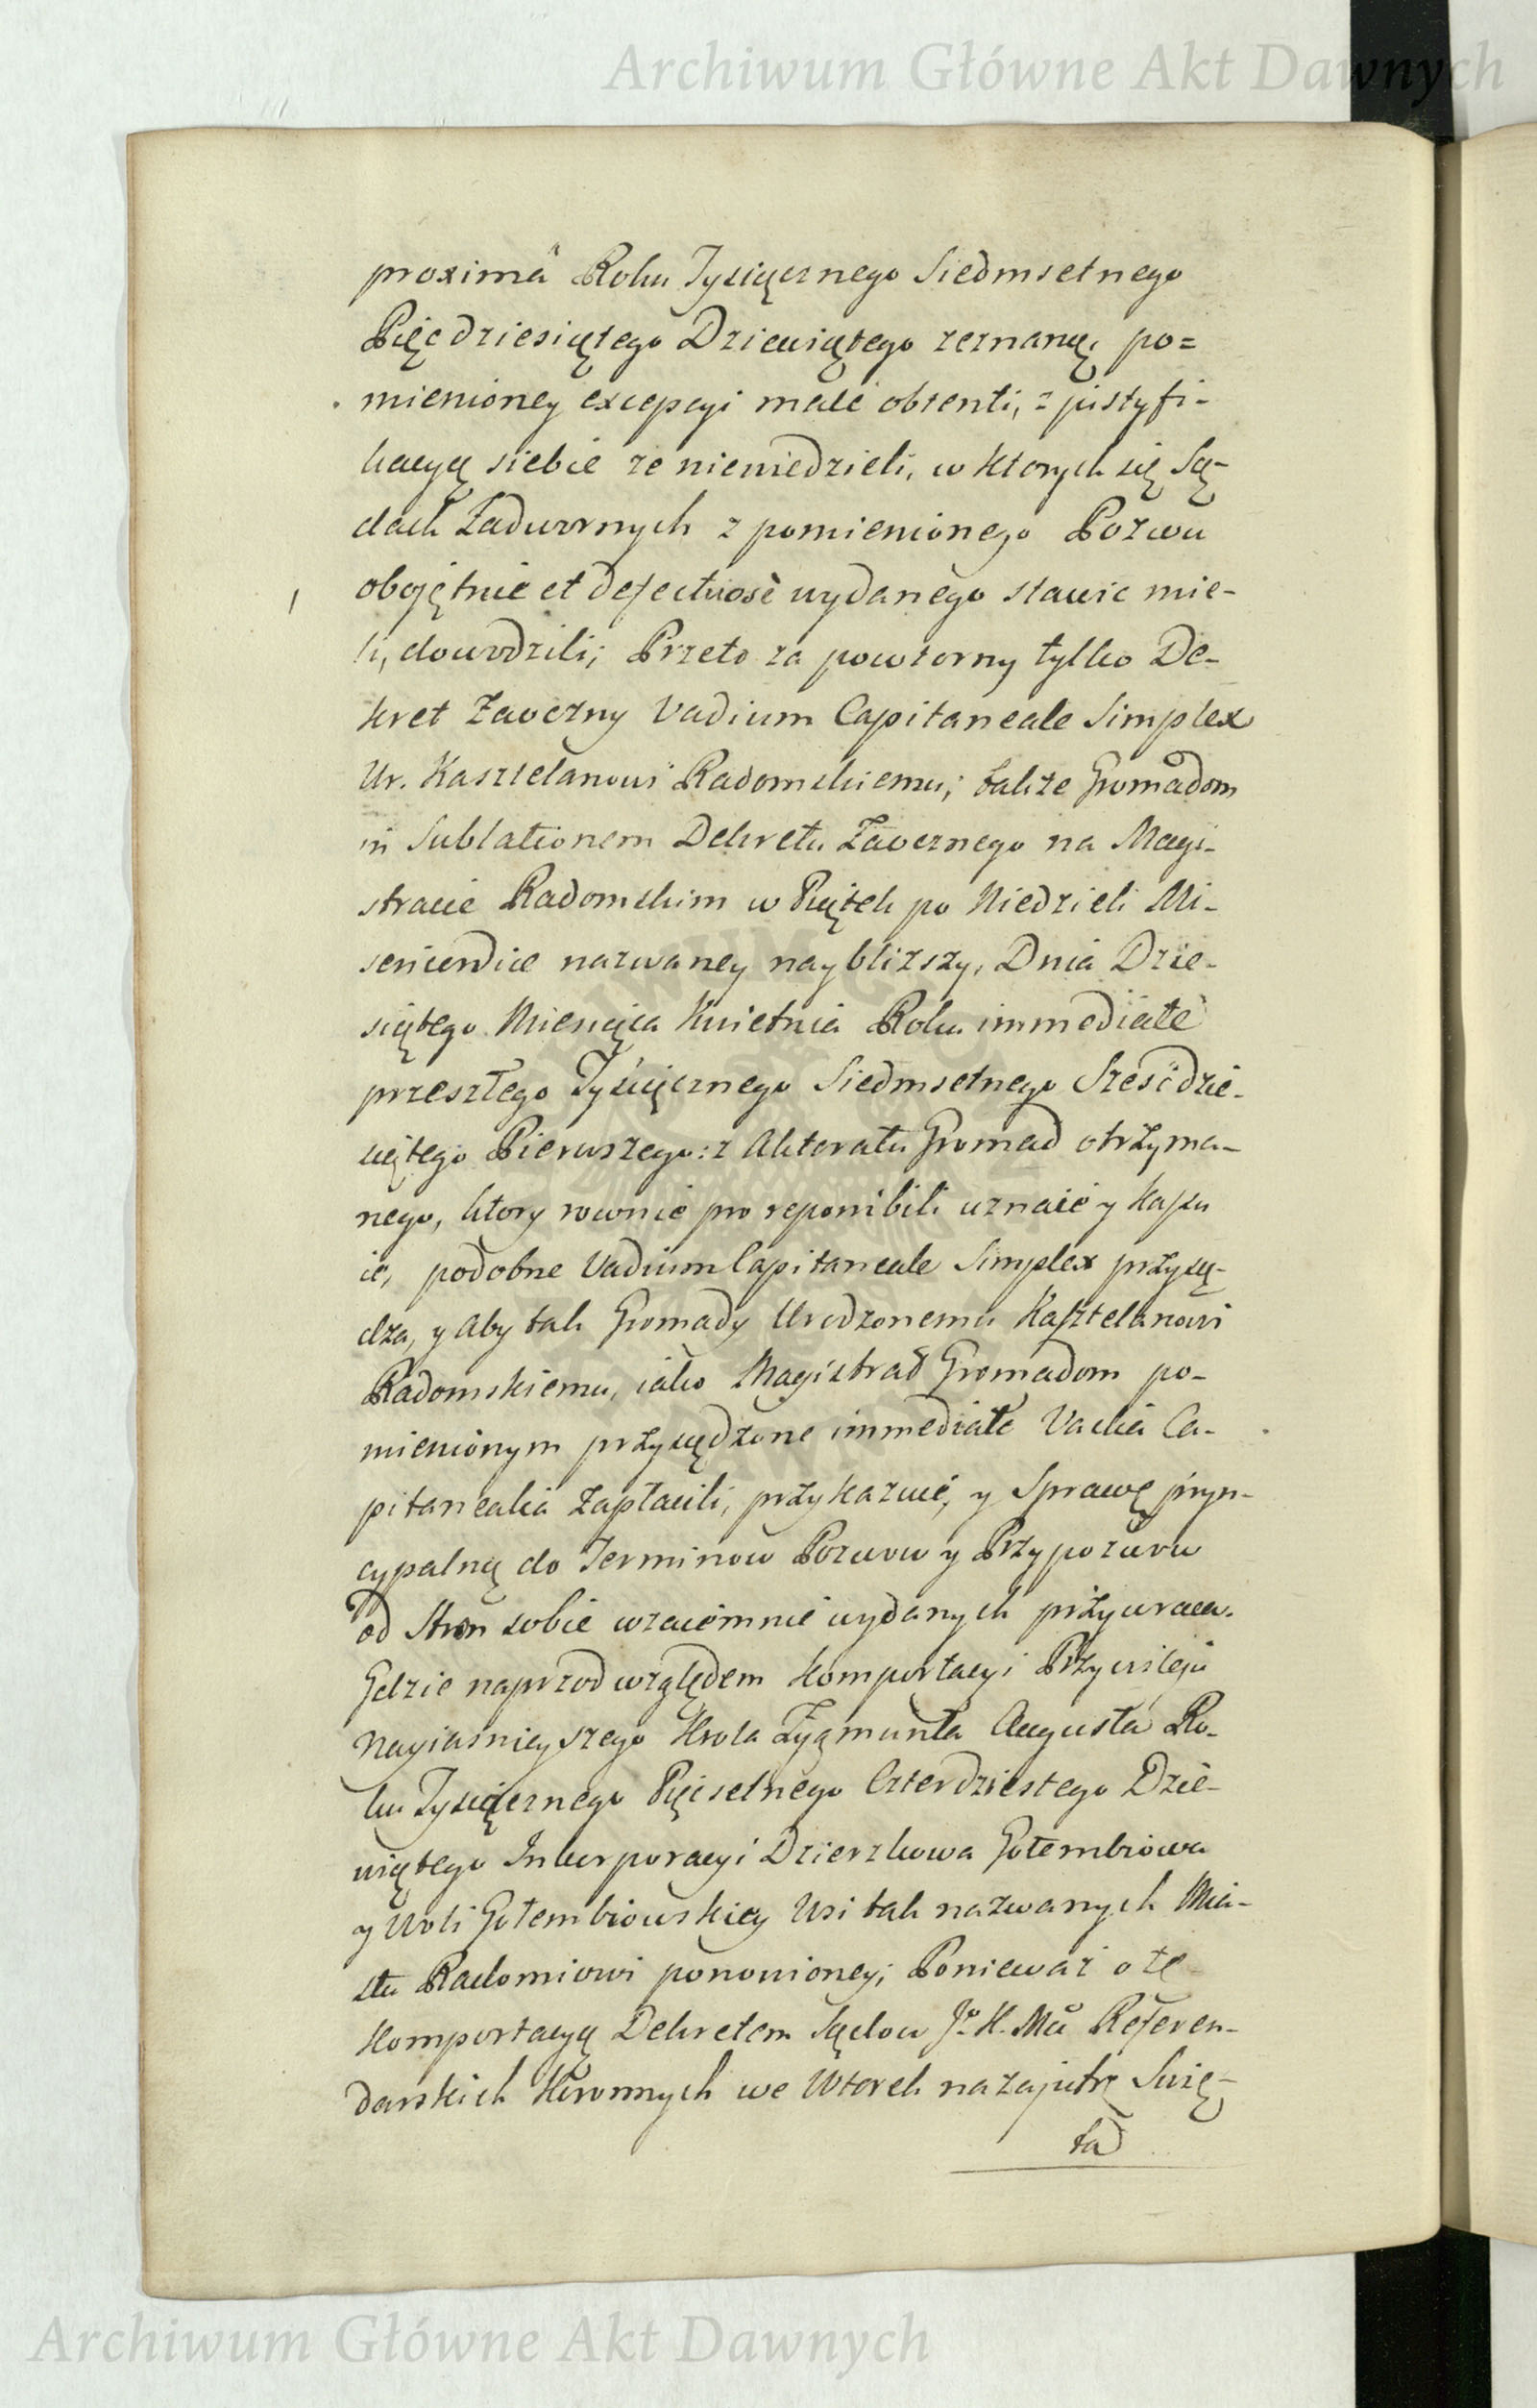 Archiwum Główne Akt Dawnych
proxima Roku Tysiącznego Siedmsetnego
Pięcdziesiątego Dziewiątego zeznaną, po=
mienioney excepcyi male obtenti, z justyfi-
kacyą siebie ze niewiedzieli, w ktorych się Są-
dach Zadwornych z pomienionego Pozwu
obojętnie et defectuosè wydanego stawic mie-
li, dowodzili; Przeto za powtorny tylko De-
kret Zaoczny Vadium Capitaneale Simplex
Ur. Kasztelanowi Radomskiemu; także Gromadom
in Sublationem Dekretu Zaocznego na Magi-
stracie Radomskim w Piątek po Niedzieli Mi-
sericordice nazwaney naybliższy, Dnia Dzie-
siątego Miesiąca Kwietnia Roku immediate
przeszłego Tysiącznego Siedmsetnego Sześćdzie-
siątego Pierwszego: z Aktoratu Gromad otrzyma-
nego, ktory rownie pro reponibili uznaie y kassu
ie, podobne Vadium Capitaneale Simplex przysą-
dza, y Aby tak Gromady Urodzonemu Kasztelanowi
Radomskiemu, iako Magistrat Gromadom po-
mienionym przysądzone immediate Vadia Ca-
pitanealia zapłacili, przykazuie, y Sprawę pryn-
cypalną do Terminow Pozwow y Przypozwu
od Stron sobie wzaiemnie wydanych przywraca.
Gdzie naprzod względem komportacyi Przywileju
Nayiasnieyszego Krola Zygmunta Augusta Ro-
ku Tysiącznego Pięcsetnego Czterdziestego Dzie-
wiątego Inkorporacyi Dzierzkowa Gołembiowa
y Woli Gołembiowskiey Wsi tak nazwanych Mia-
stu Radomiowi ponowioney; Ponieważ o tę
komportacyą Dekretem Sądow J. K. Mci Referen-
darskich Koronnych we Wtorek nazajutrz Swię-
ta
Archiwum Główne Akt Dawnych